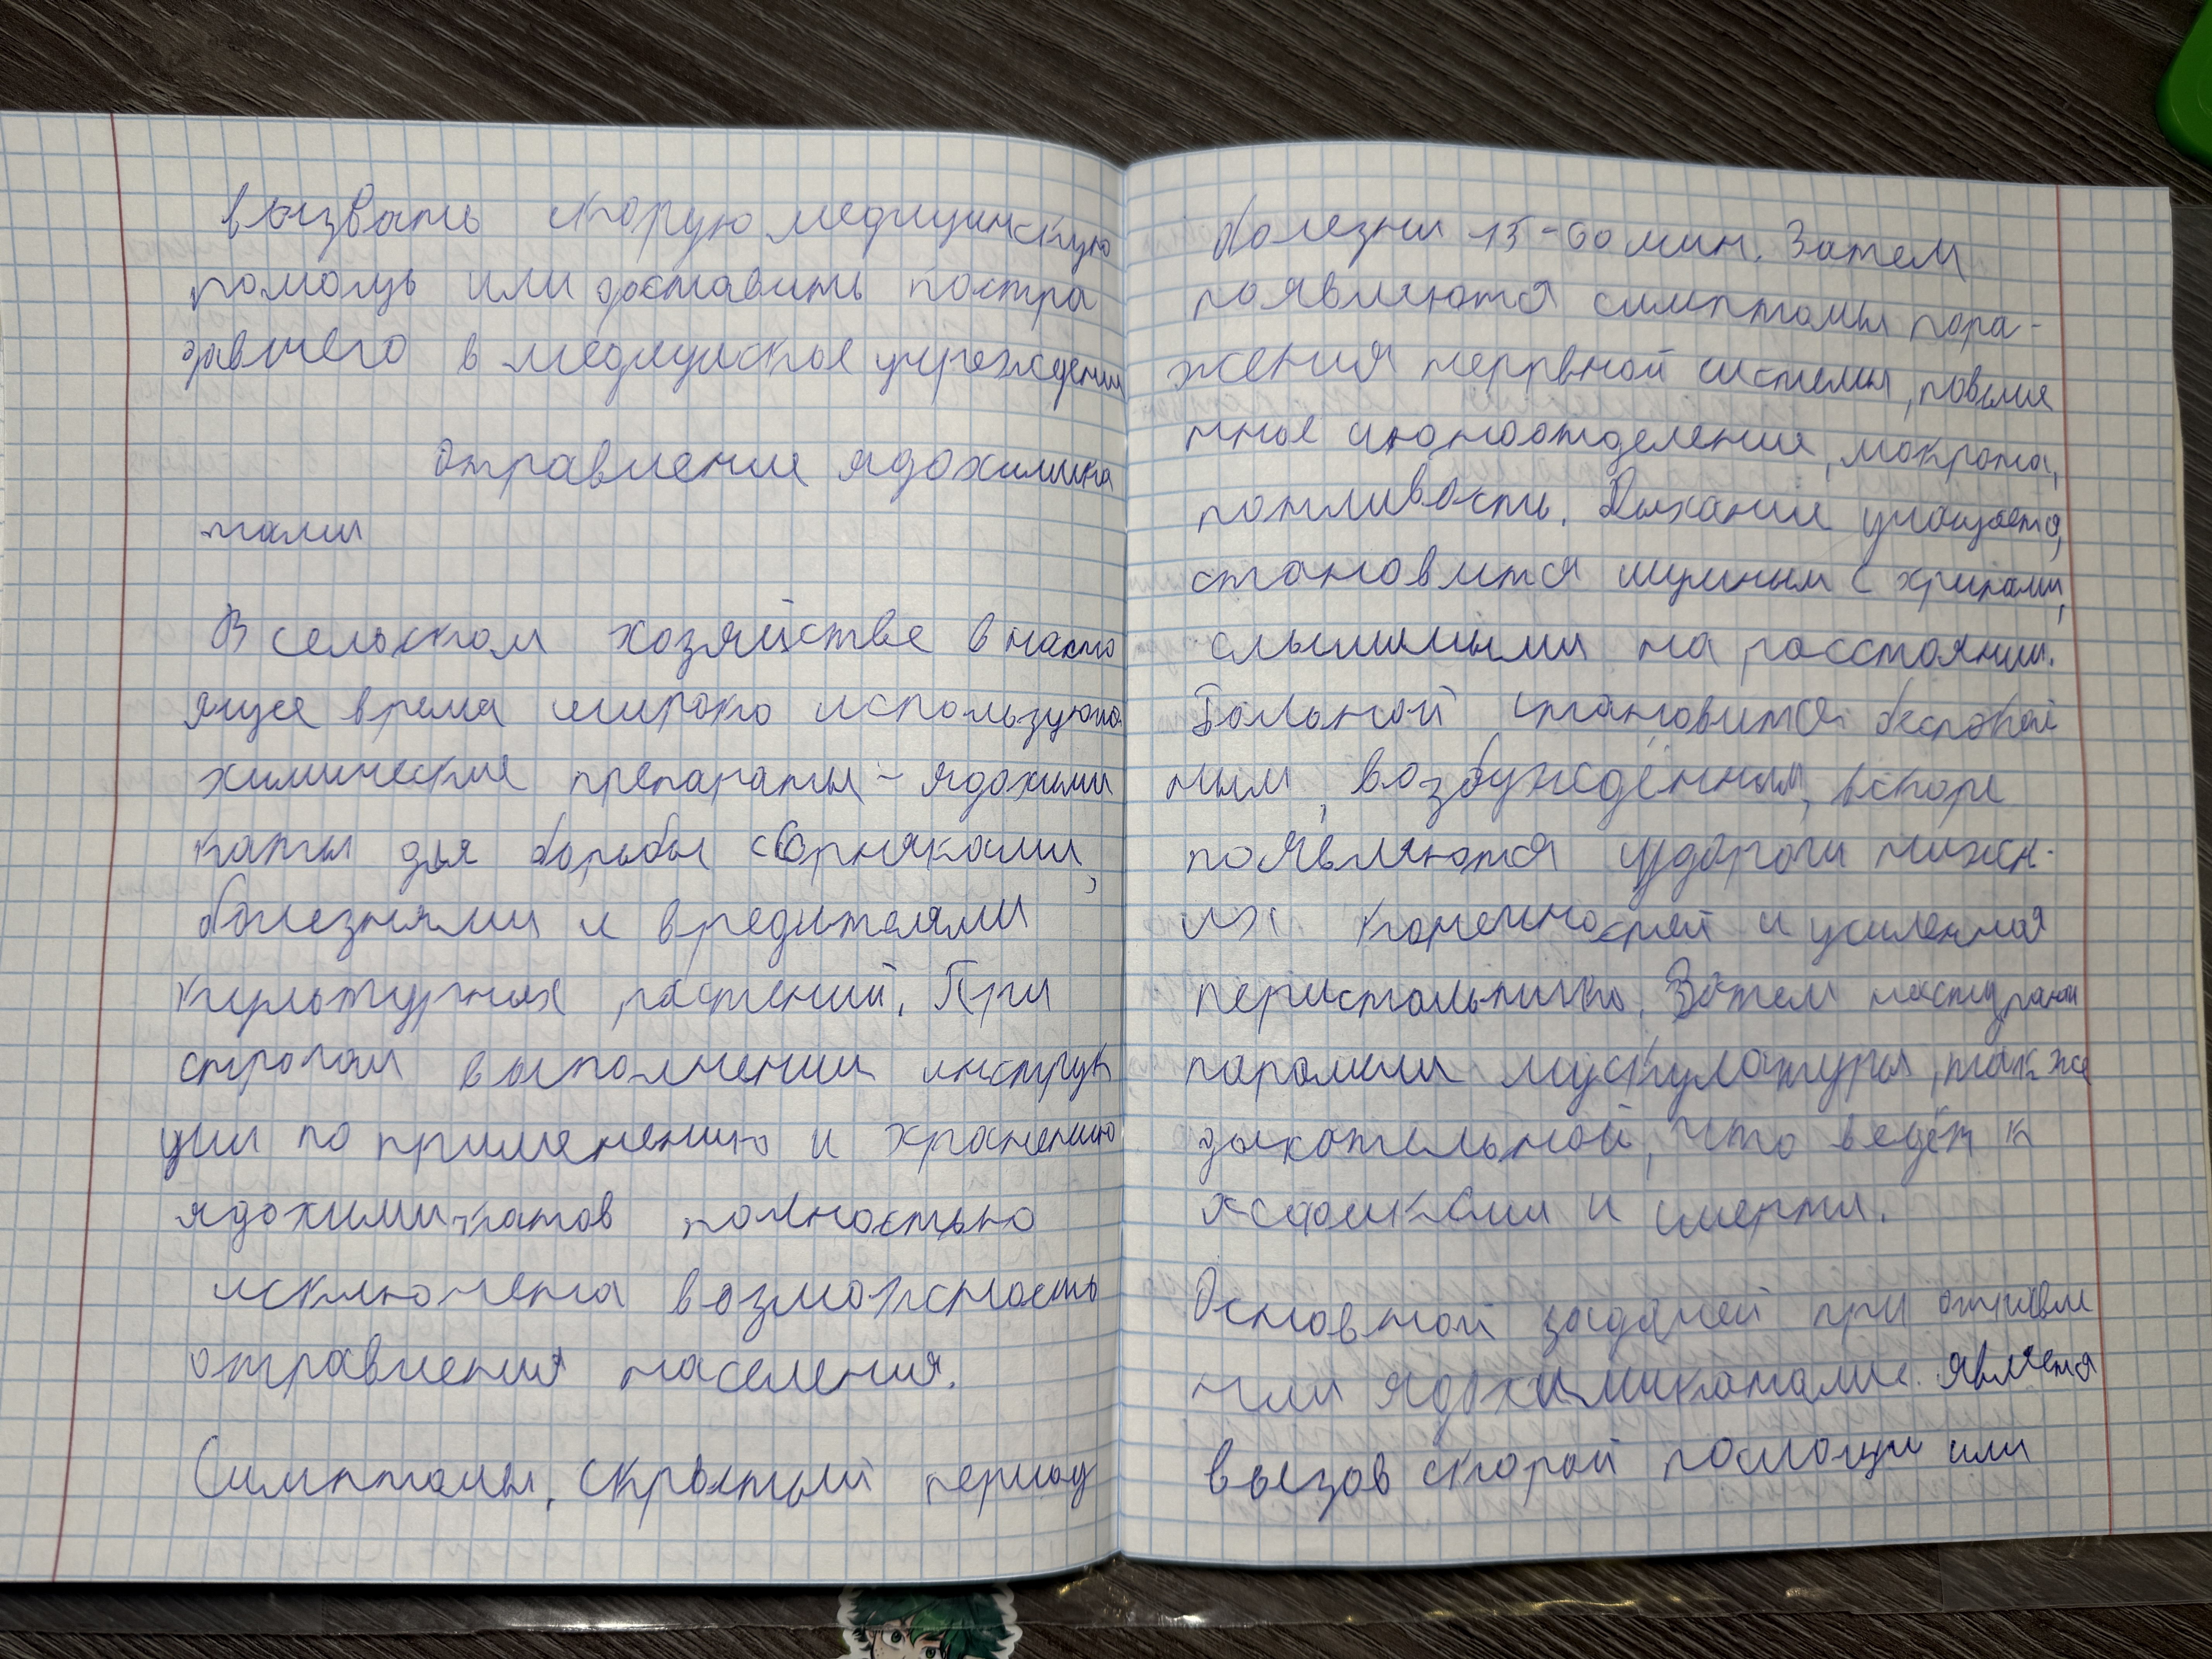 вызвать скорую медицинскую
помощь или доставить постра
давшего в медицинское учреждении
Отравление ядохимика
тами
В сельском хозяйстве в насто
ящее время широко используются
химические препараты - ядохими
каты для борьбы с сорняками,
болезнями и вредителями
культурных растений. При
строгом выполнении инструк
ции по применению и хранению
ядохимикатов полностью
исключена возможность
отравления населения.
Симптомы, скрытый период
болезни 15-60 мин. Затем
появляются симптомы пора-
жения нервной системы, повыше
нное слюноотделение, мокрота,
потливость. Дыхание учащается,
становится шумным с хрипами,
слышимыми на расстоянии.
Больной становится беспокой
ным, возбуждённым, вскоре
появляются судороги нижн-
их конечностей и усиленная
перистальтика. Затем наступает
паралич мускулатуры, также
дыхательной, что ведёт к
и смерти.
Основной задачей при отравле
нии ядохимикатами является
вызов скорой помощи или